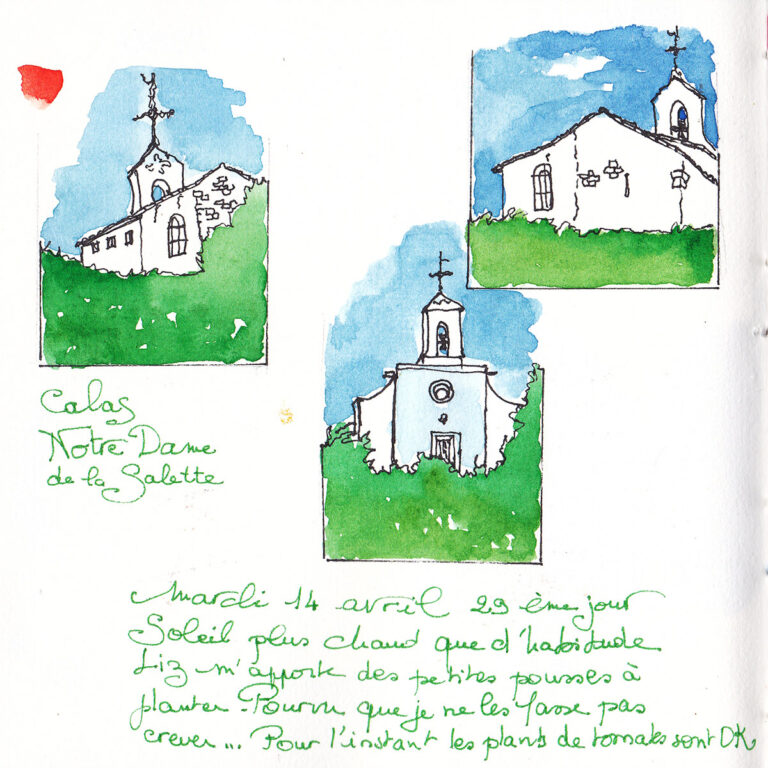 Calas
Notre Dame
de la Salette
Mardi 14 avril 29 ème jour
Soleil plus chaud que d'habitude
Liz m'apporte des petites pousses à
planter. Pourvu que je ne les fasse pas
crever... Pour l'instant les plants de tomates sont OK